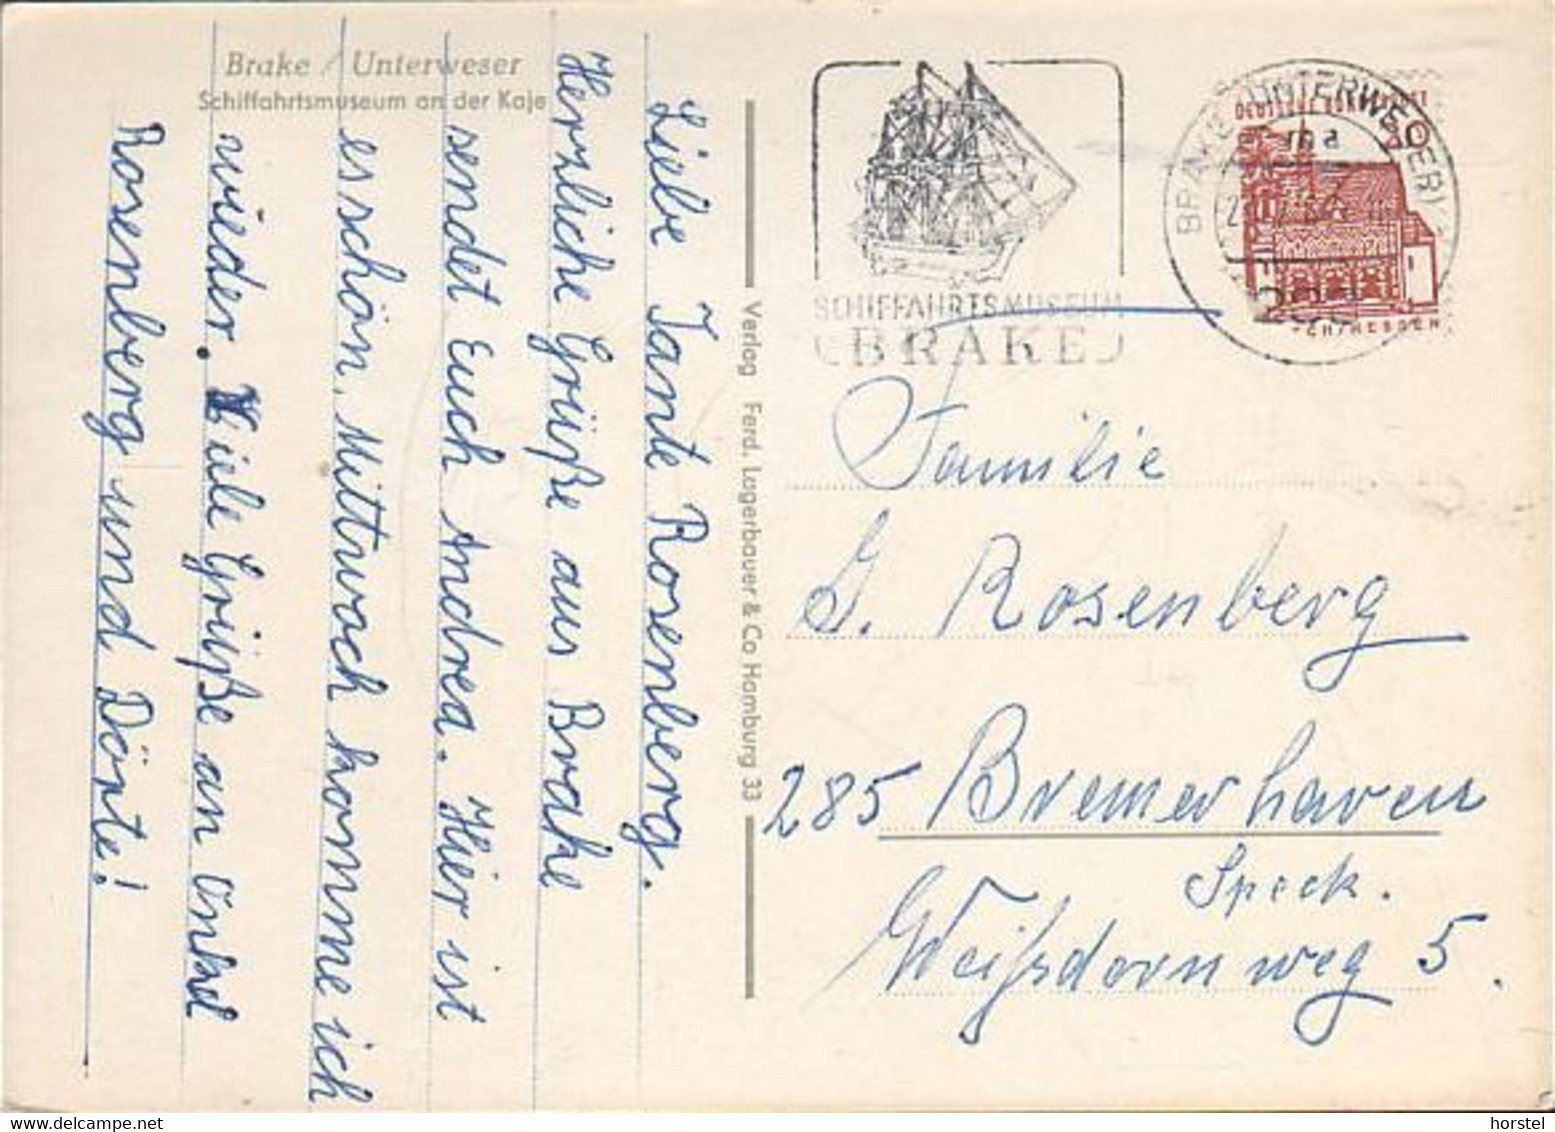 Brake / Unterweser
Schiffahrtsmuseum an der Kaje
Liebe Tante Rosenberg.
Herzliche Grüße aus Brake
sendet Euch Andrea. Hier ist
es schön. Mittwoch komme ich
wieder. Viele Grüße an Onkel
Rosenberg und Dörte!
Verlag Ferd. Lagerbauer & Co Hamburg 33
SCHIFFAHRTSMUSEUM
BRAKE
BRAKE (UNTERWESER)
ma
DEUTSCHE BUNDESPOST
20
Familie
G. Rosenberg
285 Bremerhaven
Speck.
Weißdornweg 5.
www.delcampe.net
horstel